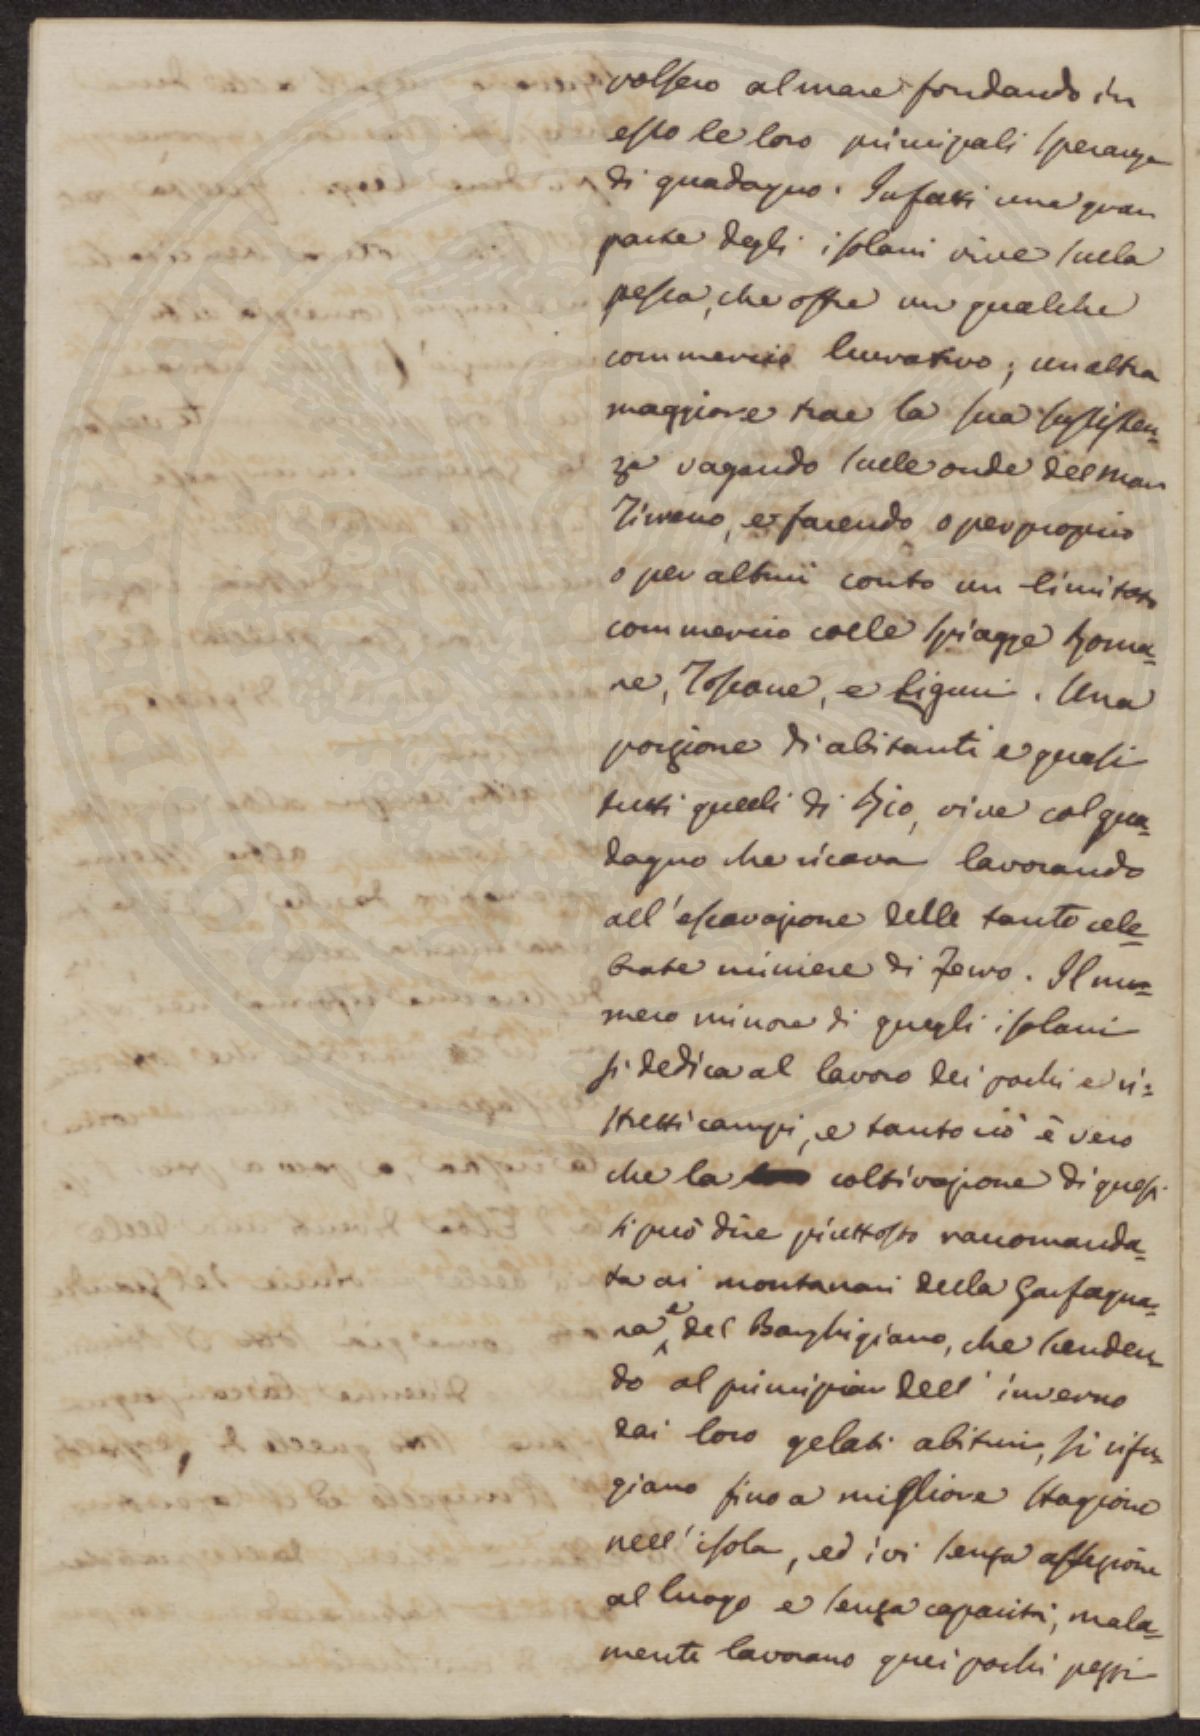 volsero al mare fondando in
esso le loro principali speranze
di guadagno. Infatti una gran
parte degli isolani vive sulla
pesca, che offre un qualche
commercio lucrativo; un altra
maggiore trae la sua sussisten=
za vagando sulle onde del mar
Tirreno, e facendo o per proprio
o per altrui conto un limitato
commercio colle spiagge Roma=
ne, Toscane, e Liguri. Una
porzione di abitanti e quasi
tutti quelli di Rio, vive col gua=
dagno che ricava lavorando
all'escavazione delle tanto cele=
brate miniere di ferro. Il nu=
mero minore di quegli isolani
si dedica al lavoro dei pochi e ri=
stretti campi, e tanto ciò è vero
che la coltivazione di questi
si può dire piuttosto raccomanda=
ta ai montanari della Garfagna=
na e del Barghigiano, che scenden
do al principiar dell'inverno
dai loro gelati abituri, si rifu
giano fino a migliore stagione
nell'isola, ed ivi senza affezione
al luogo e senza capacità, mala=
mente lavorano quei pochi pezzi